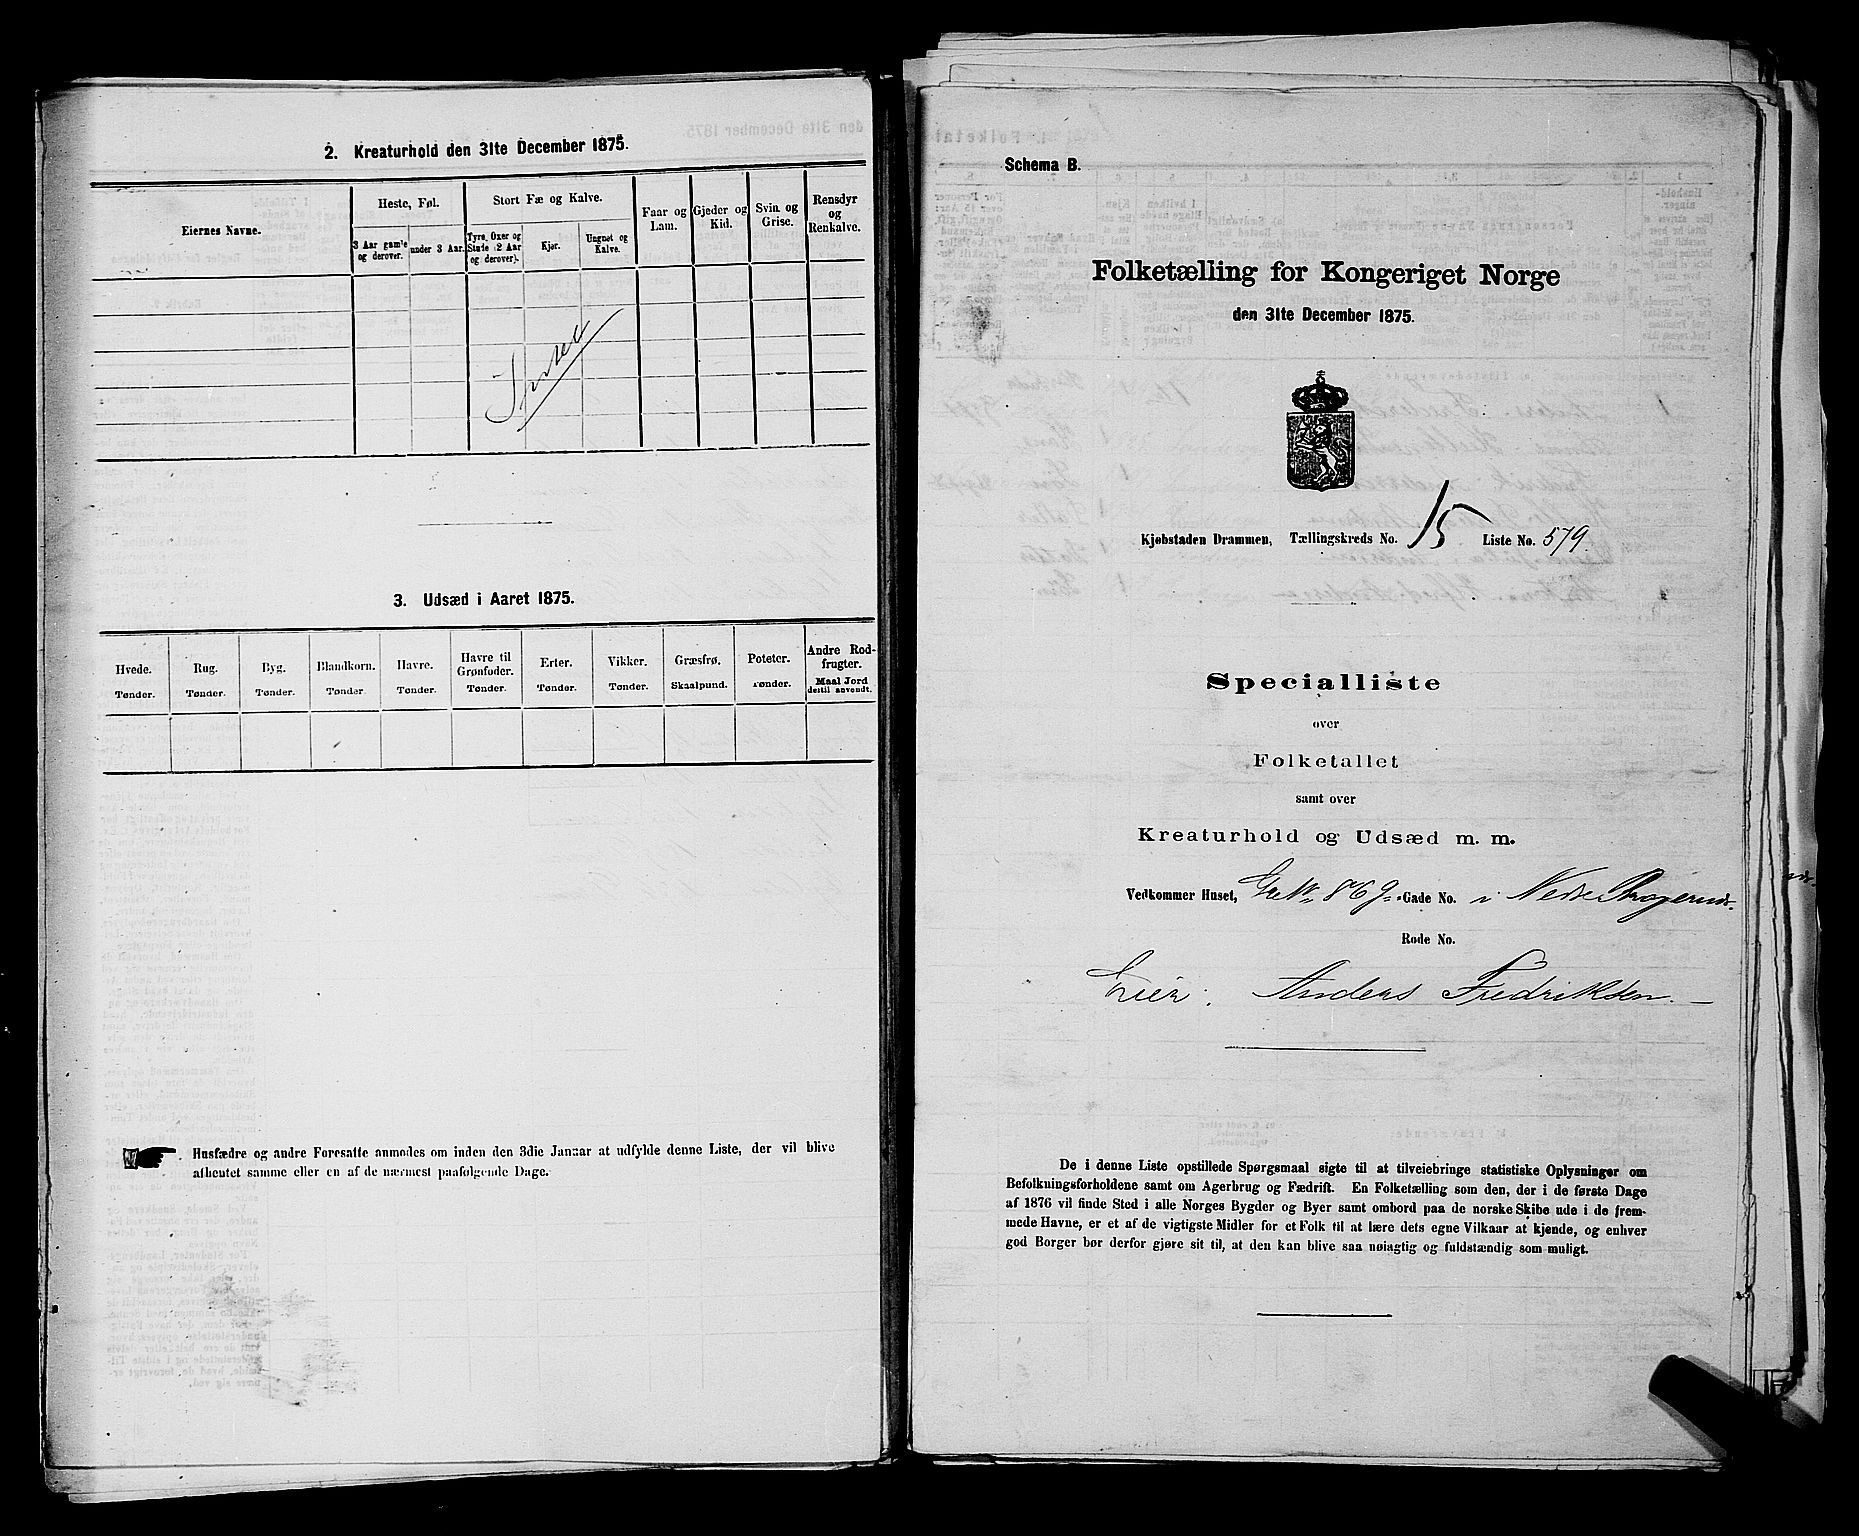 2. Kreaturhold den 31te December 1875.
Eiernes Navne.
Heste, Føl.
Stort Fæ og Kalve.
Faar og Lam.
Gjeder og Kid.
Svin og Grise.
Rensdyr og Renkalve.
3 Aar gamle og derover.
under 3 Aar.
Tyre, Oxer og Stude (2 Aar og derover).
Kjør.
Ungnøt og Kalve.
3. Udsæd i Aaret 1875.
Hvede. Tønder.
Rug. Tønder.
Byg. Tønder.
Blandkorn. Tønder.
Havre. Tønder.
Havre til Grønfoder. Tønder.
Erter. Tønder.
Vikker. Tønder.
Græsfrø. Skaalpund.
Poteter. Tønder.
Andre Rodfrugter. Maal Jord dertil anvendt.
Husfædre og andre Foresatte anmodes om inden den 3die Januar at udfylde denne Liste, der vil blive
afhentet samme eller en af de nærmest paafølgende Dage.
Schema B.
Folketælling for Kongeriget Norge
den 31te December 1875.
Kjøbstaden Drammen, Tællingskreds No. 15 Liste No. 579.
Specialliste
over
Folketallet
samt over
Kreaturhold og Udsæd m. m.
Vedkommer Huset, 869 Gade No. i Nedre Bragernes
Rode No.
Eier: Anders Fredriksen.
De i denne Liste opstillede Spørgsmaal sigte til at tilveiebringe statistiske Oplysninger om
Befolkningsforholdene samt om Agerbrug og Fædrift. En Folketælling som den, der i de første Dage
af 1876 vil finde Sted i alle Norges Bygder og Byer samt ombord paa de norske Skibe ude i de frem-
mede Havne, er et af de vigtigste Midler for et Folk til at lære dets egne Vilkaar at kjende, og enhver
god Borger bør derfor gjøre sit til, at den kan blive saa nøiagtig og fuldstændig som muligt.